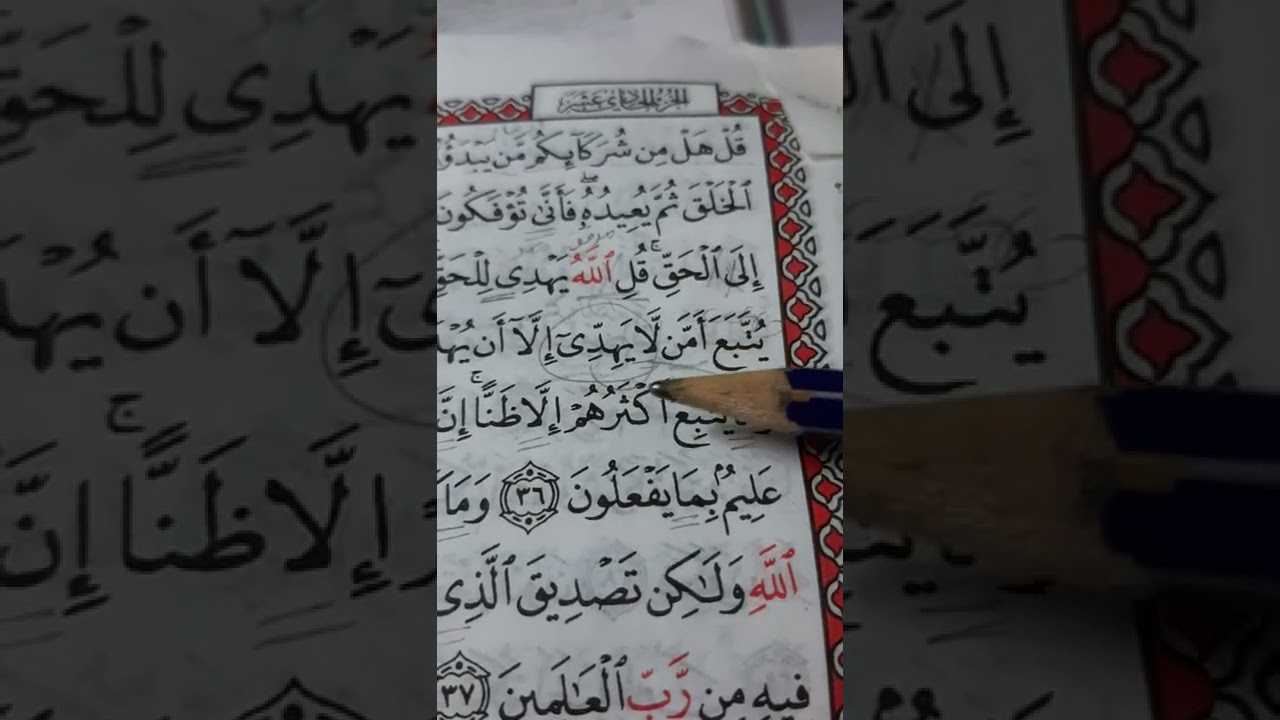 الجزء الحادي عشر
قُلْ هَلْ مِن شُرَكَآئِكُم مَّن يَبْدَؤُا۟
ٱلْخَلْقَ ثُمَّ يُعِيدُهُۥ ۖ فَأَنَّىٰ تُؤْفَكُونَ
إِلَى ٱلْحَقِّ ۚ قُلِ ٱللَّهُ يَهْدِى لِلْحَقِّ
يُتَّبَعَ أَمَّن لَّا يَهِدِّىٓ إِلَّآ أَن يُهْدَ
يَتَّبِعُ أَكْثَرُهُمْ إِلَّا ظَنًّا ۚ إِنَّ
عَلِيمٌۢ بِمَا يَفْعَلُونَ ٣٦ وَمَا كَ
ٱللَّهِ وَلَـٰكِن تَصْدِيقَ ٱلَّذِى
فِيهِ مِن رَّبِّ ٱلْعَـٰلَمِينَ ٣٧